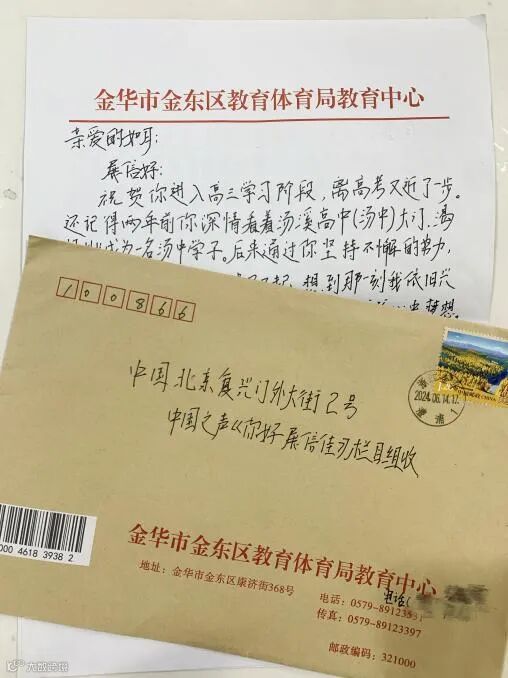 金华市金东区教育体育局教育中心
亲爱的如耳:
展信好:
祝贺你进入高三学习阶段,离高考又近了一步。
还记得两年前你深情看着汤溪高中(汤中)大门,渴
成为一名汤中学子。后来通过你坚持不懈的努力,
想到那一刻我依旧兴
梦想
100866
中国 北京复兴门外大街2号
中国之声《你好 展信佳》栏目组收
2024.06.14.17
中国邮政 CHINA
000 4618 3938 2
金华市金东区教育体育局教育中心
地址:金华市金东区康济街368号
电话:0579-89123531
电话(
传真:0579-89123397
邮政编码:321000
大故岭塔